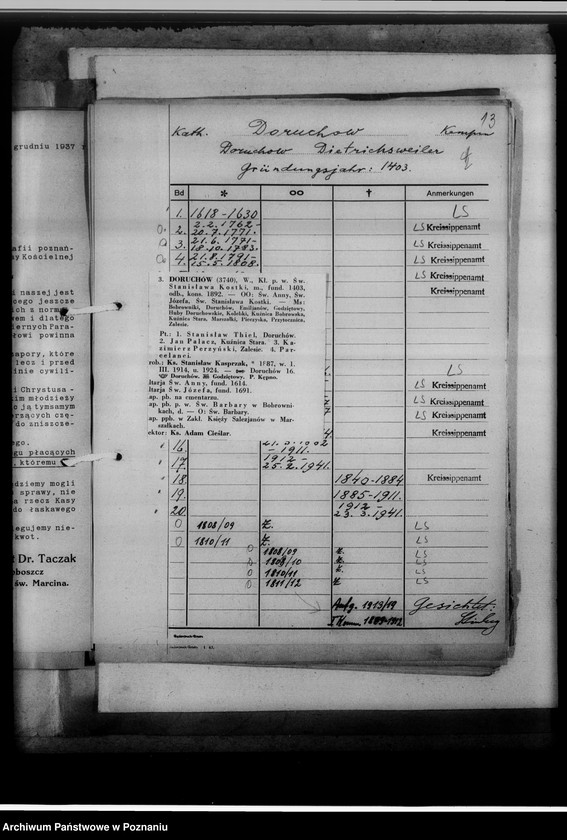 13
Kath. Doruchow Kempen
Doruchow Dietrichsweiler
Gründungsjahr: 1403.
Bd * oo † Anmerkungen
1. 1618-1630 LS
2. 2.2.1762- 20.7.1771. LS Kreissippenamt
3. 21.6.1771- 18.10.1783. LS Kreissippenamt
4. 21.8.1791- 15.5.1808. LS Kreissippenamt
LS Kreissippenamt
Kreissippenamt
3. DORUCHÓW (3740), W., Kl. p. w. Św.
Stanisława Kostki, m., fund. 1403,
odb., kons. 1892. — OO: Św. Anny, Św.
Józefa, Św. Stanisława Kostki. — Ma:
Bobrowniki, Doruchów, Emilianów, Godziętowy,
Huby Doruchowskie, Kuźnica Bobrowska,
Kuźnica Stara, Marszałki, Pieczyska, Przytocznica,
Zalesie.
Pt.: 1. Stanisław Thiel, Doruchów.
2. Jan Palaca, Kuźnica Stara. 3. Ka-
zimierz Perzyński, Zalesie. 4. Par-
celanci.
rob.: Ks. Stanisław Kasprzak, * 1887, w. 1.
III. 1914, u. 1924. — Doruchów 16.
Doruchów. Godziętowy. P. Kępno.
ltarja Św. Anny, fund. 1614.
ltarja Św. Józefa, fund. 1691.
ap. pb. na cmentarzu.
ap. pb. p. w. Św. Barbary w Bobrowni-
kach, d. — O: Św. Barbary.
ap. ppb. w Zakł. Księży Salezjanów w Mar-
szałkach.
ektor: Ks. Adam Cieślar.
LS
LS Kreissippenamt
LS Kreissippenamt
LS Kreissippenamt
Kreissippenamt
16. - 1911.
17. 1912- 25.2.1941.
18. 1840-1884 Kreissippenamt
19. 1885-1911.
20. 1912- 23.3.1941.
1808/09 LS
1810/11 LS
1808/09 LS
1809/10 LS
1810/11 LS
1811/12 LS
Aufg. 1913/19 Gesichtet:
grudniu 1937 r
afii poznań-
y Kościelnej
i naszej jest
ego jeszcze
ch z norma
em i dlatego
iernych Para-
rowi powinna
apory, które
lecz i przed
inie cywili-
i Chrystusa -
im młodzieży
o ją tymsamym
erzących czę-
do zniszcze-
ego.
gu płacących
, któremu
dziemy mogli
sprawy, nie
a rzecz Kasy
do łaskawego
egujemy nie-
kwot.
Dr. Taczak
boszcz
św. Marcina.
Archiwum Państwowe w Poznaniu